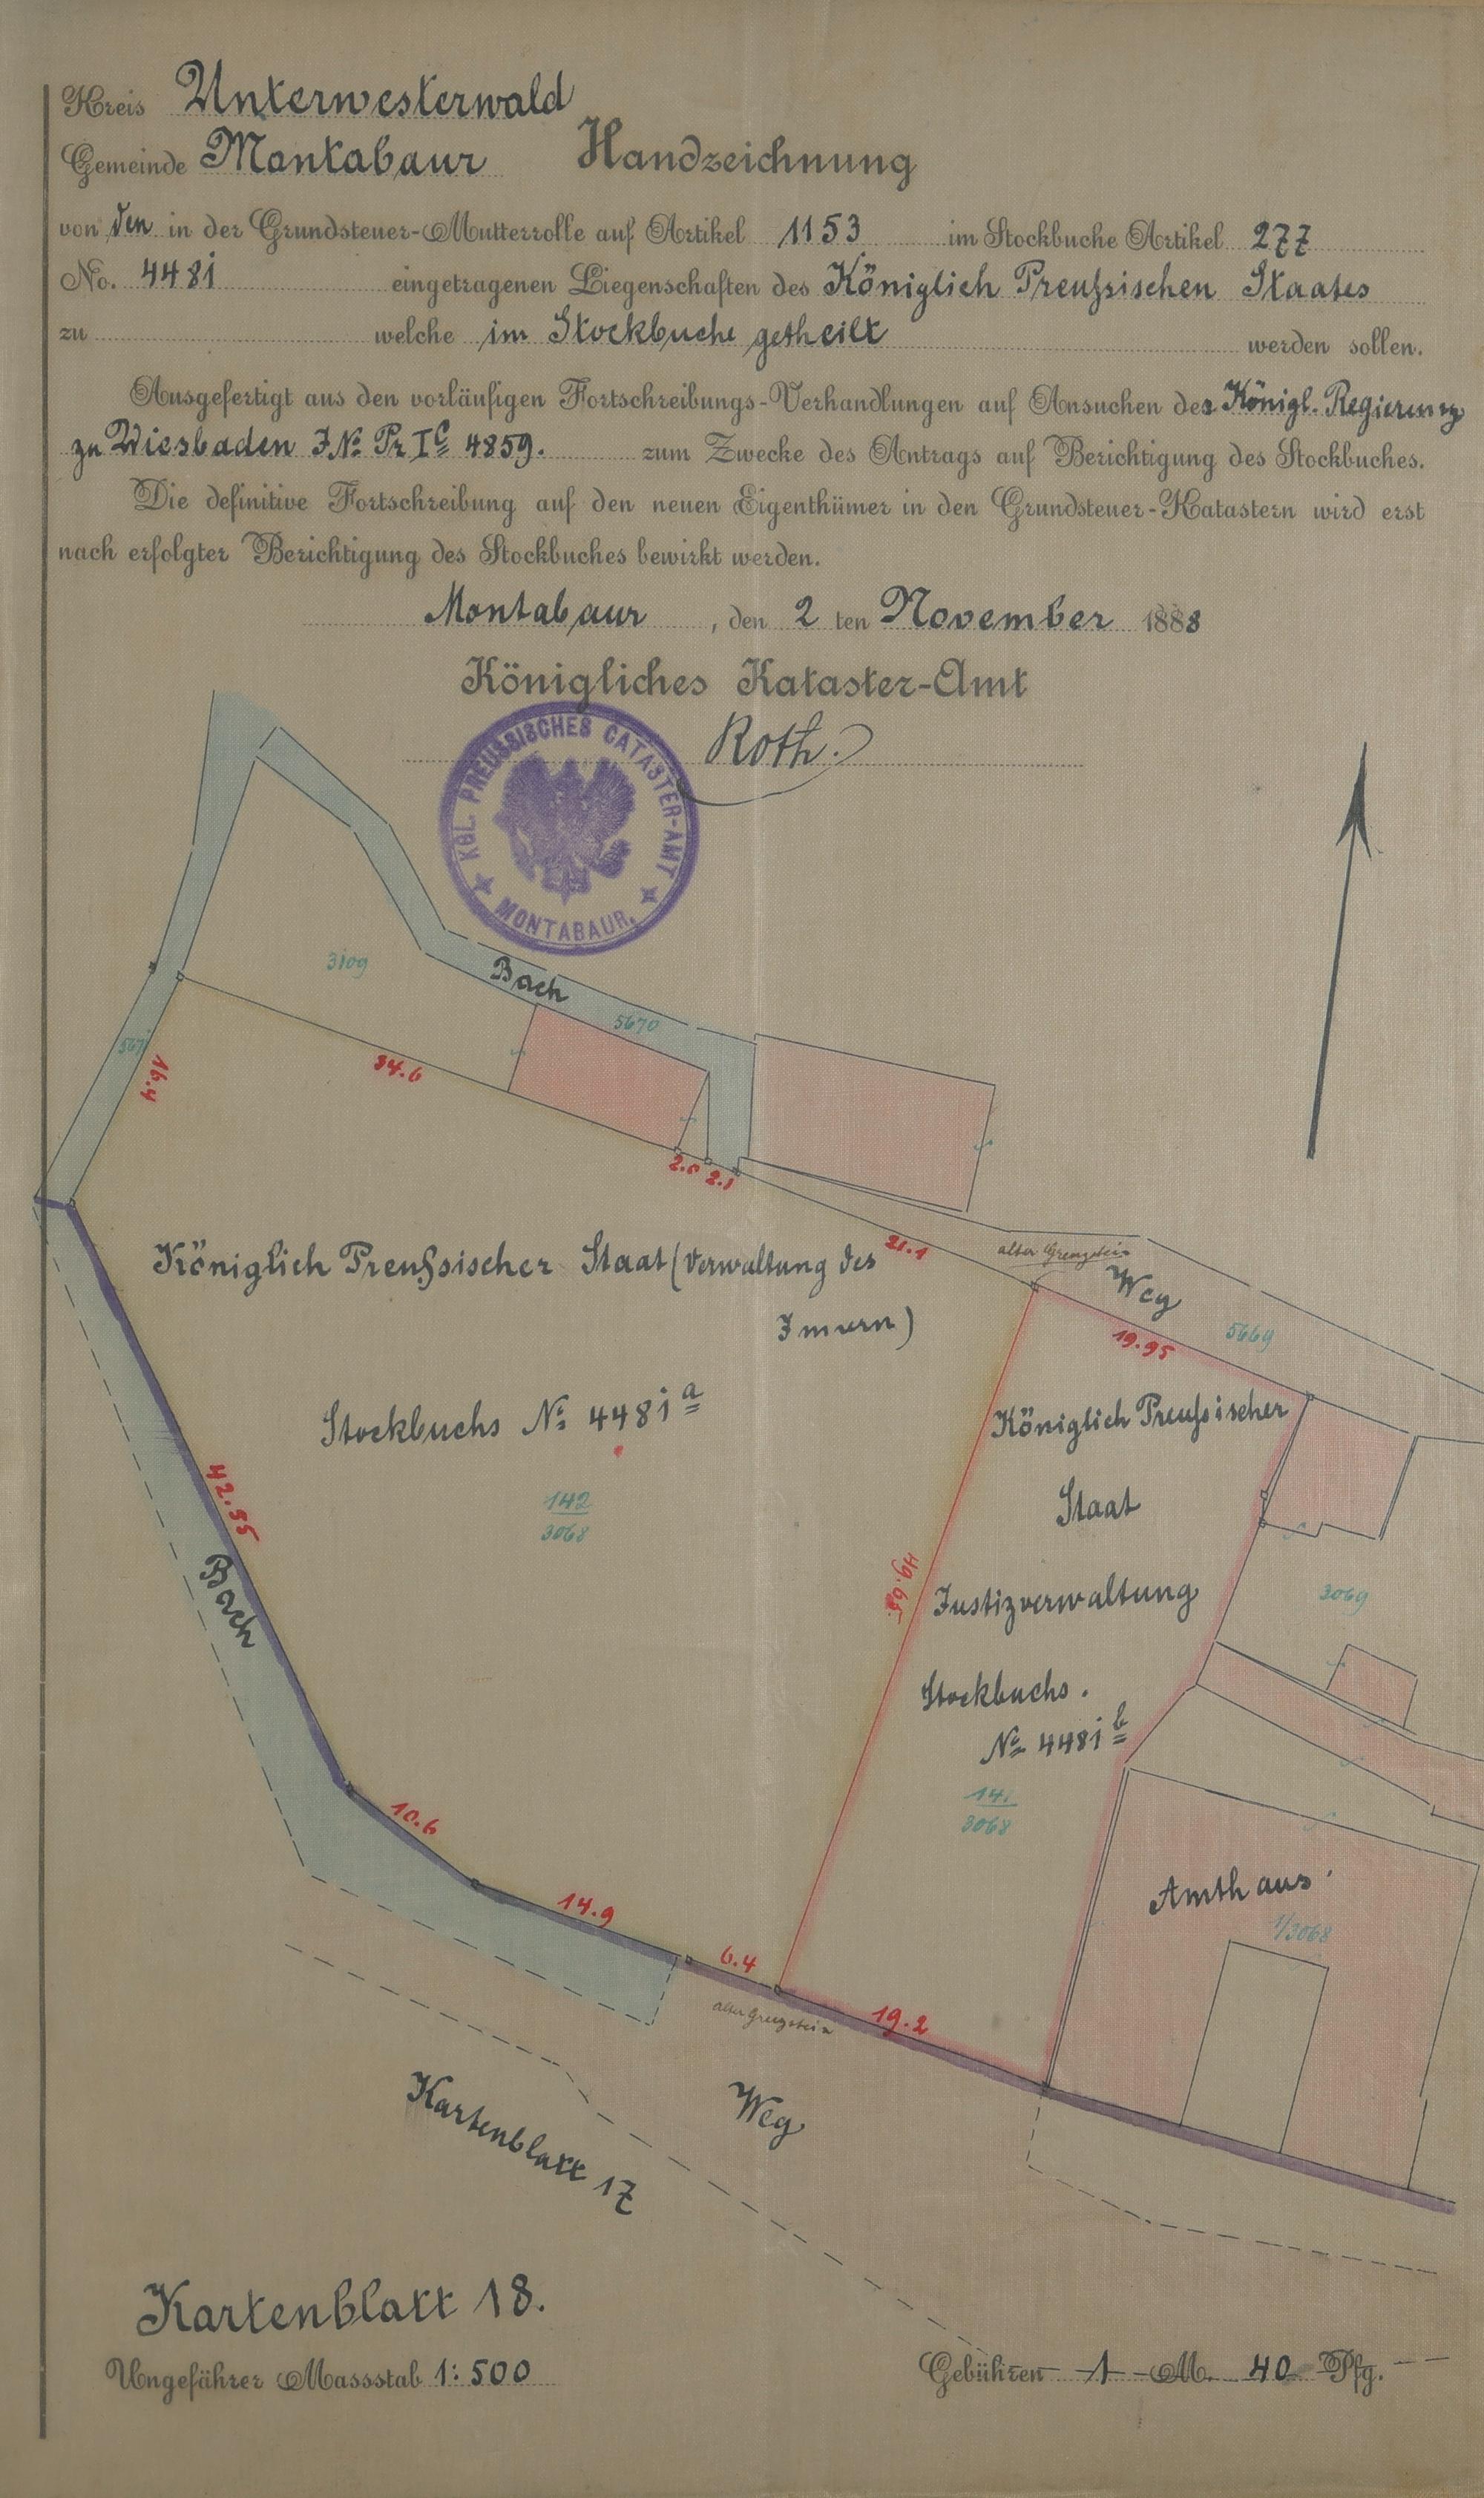 Kreis Unterwesterwald
Gemeinde Montabaur Handzeichnung
von den in der Grundsteuer-Mutterrolle auf Artikel 1153 im Stockbuche Artikel 277
No. 4481 eingetragenen Liegenschaften des Königlich Preußischen Staates
zu welche im Stockbuche getheilt werden sollen.
Ausgefertigt aus den vorläufigen Fortschreibungs-Verhandlungen auf Ansuchen der Königl. Regierung
zu Wiesbaden J.№ Pr I C 4859. zum Zwecke des Antrags auf Berichtigung des Stockbuches.
Die definitive Fortschreibung auf den neuen Eigenthümer in den Grundsteuer-Katastern wird erst
nach erfolgter Berichtigung des Stockbuches bewirkt werden.
Montabaur, den 2 ten November 1888
Königliches Kataster-Amt
Roth.
KGL. PREUSSISCHES CATASTER-AMT
MONTABAUR.
3109
Bach
5670
34.6
16.4
2.0
2.1
21.1
alter Grenzstein
Weg
5669
19.95
Königlich Preußischer Staat (Verwaltung des
Innern)
Stockbuchs № 4481 a
142
3068
Königlich Preußischer
Staat
Justizverwaltung
Stockbuchs.
№ 4481 b
141
3068
49.65
3069
42.55
Bach
10.6
14.9
6.4
alter Grenzstein
19.2
Amthaus
1/3068
Weg
Kartenblatt 17
Kartenblatt 18.
Ungefährer Massstab 1:500
Gebühren 1 M. 40 Pfg.